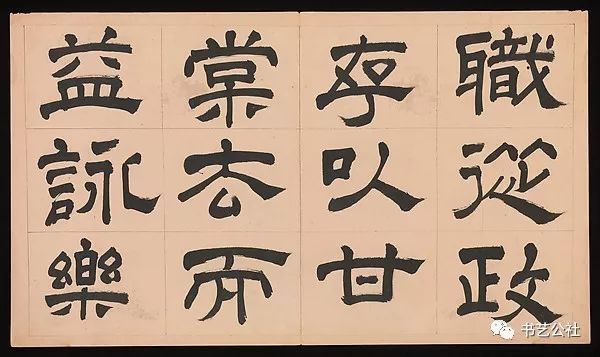 職從政
存以甘
棠去而
益詠樂
书艺公社